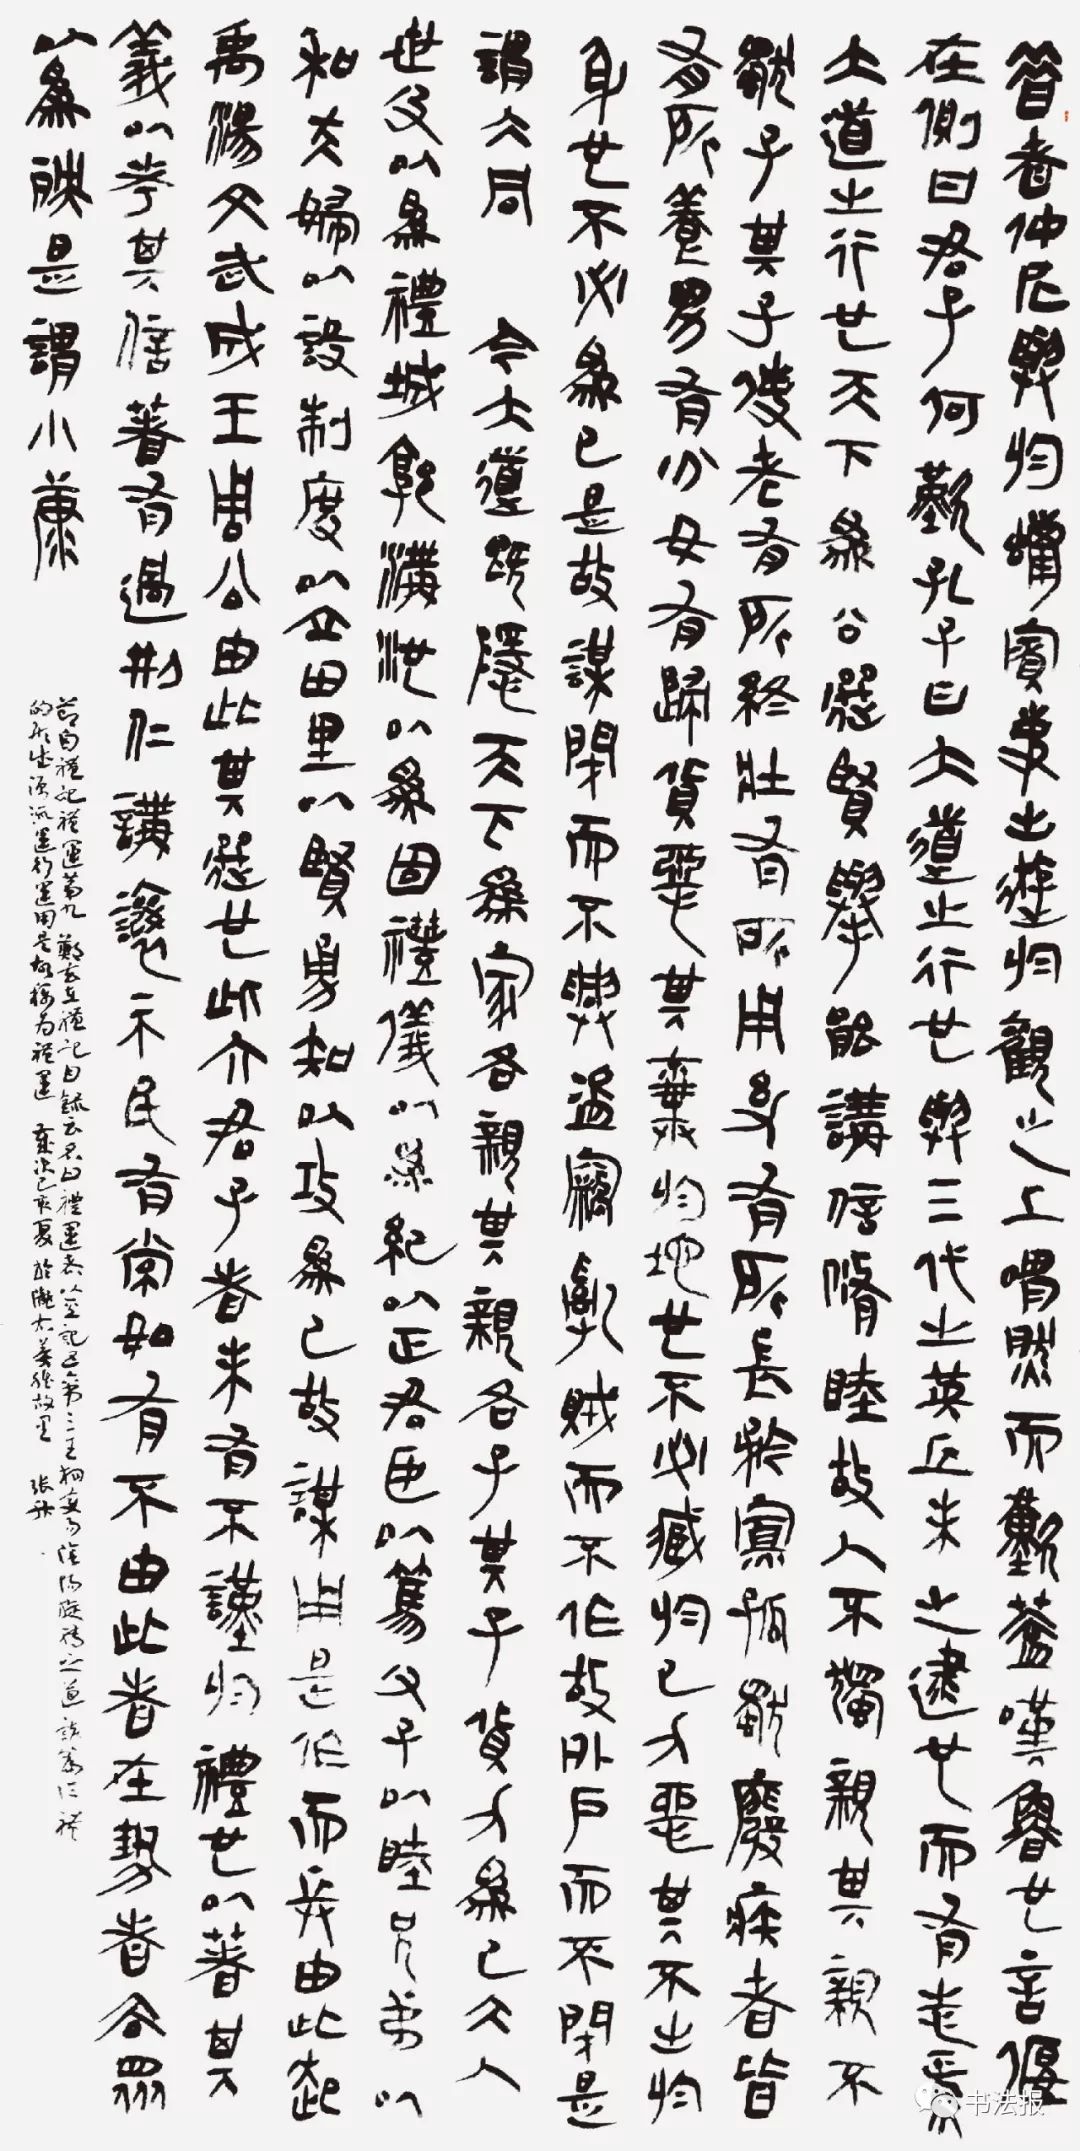 昔者仲尼與於蠟賓事出遊於觀之上喟然而歎蓋嘆魯也言偃
在側曰君子何歎孔子曰大道之行也與三代之英丘未之逮也而有志焉
大道之行也天下為公選賢舉能講信脩睦故人不獨親其親不
獨子其子使老有所終壯有所用幼有所長矜寡孤獨廢疾者皆
有所養男有分女有歸貨惡其棄於地也不必藏於己力惡其不出於
身也不必為己是故謀閉而不興盜竊亂賊而不作故外戶而不閉是
謂大同 今大道既隱天下為家各親其親各子其子貨力為己大人
世及以為禮城郭溝池以為固禮儀以為紀以正君臣以篤父子以睦兄弟以
和夫婦以設制度以立田里以賢勇知以功為己故謀用是作而兵由此起
禹湯文武成王周公由此其選也此六君子者未有不謹於禮也以著其
義以考其信著有過刑仁講讓示民有常如有不由此者在勢者去眾
以為殃是謂小康
節自禮記禮運第九 鄭玄在禮記目錄云名曰禮運者以其記五帝三王相變易陰陽旋轉之道該篇從禮
的形成源流運行運用是故稱為禮運 歲次己亥夏於 張
書法报